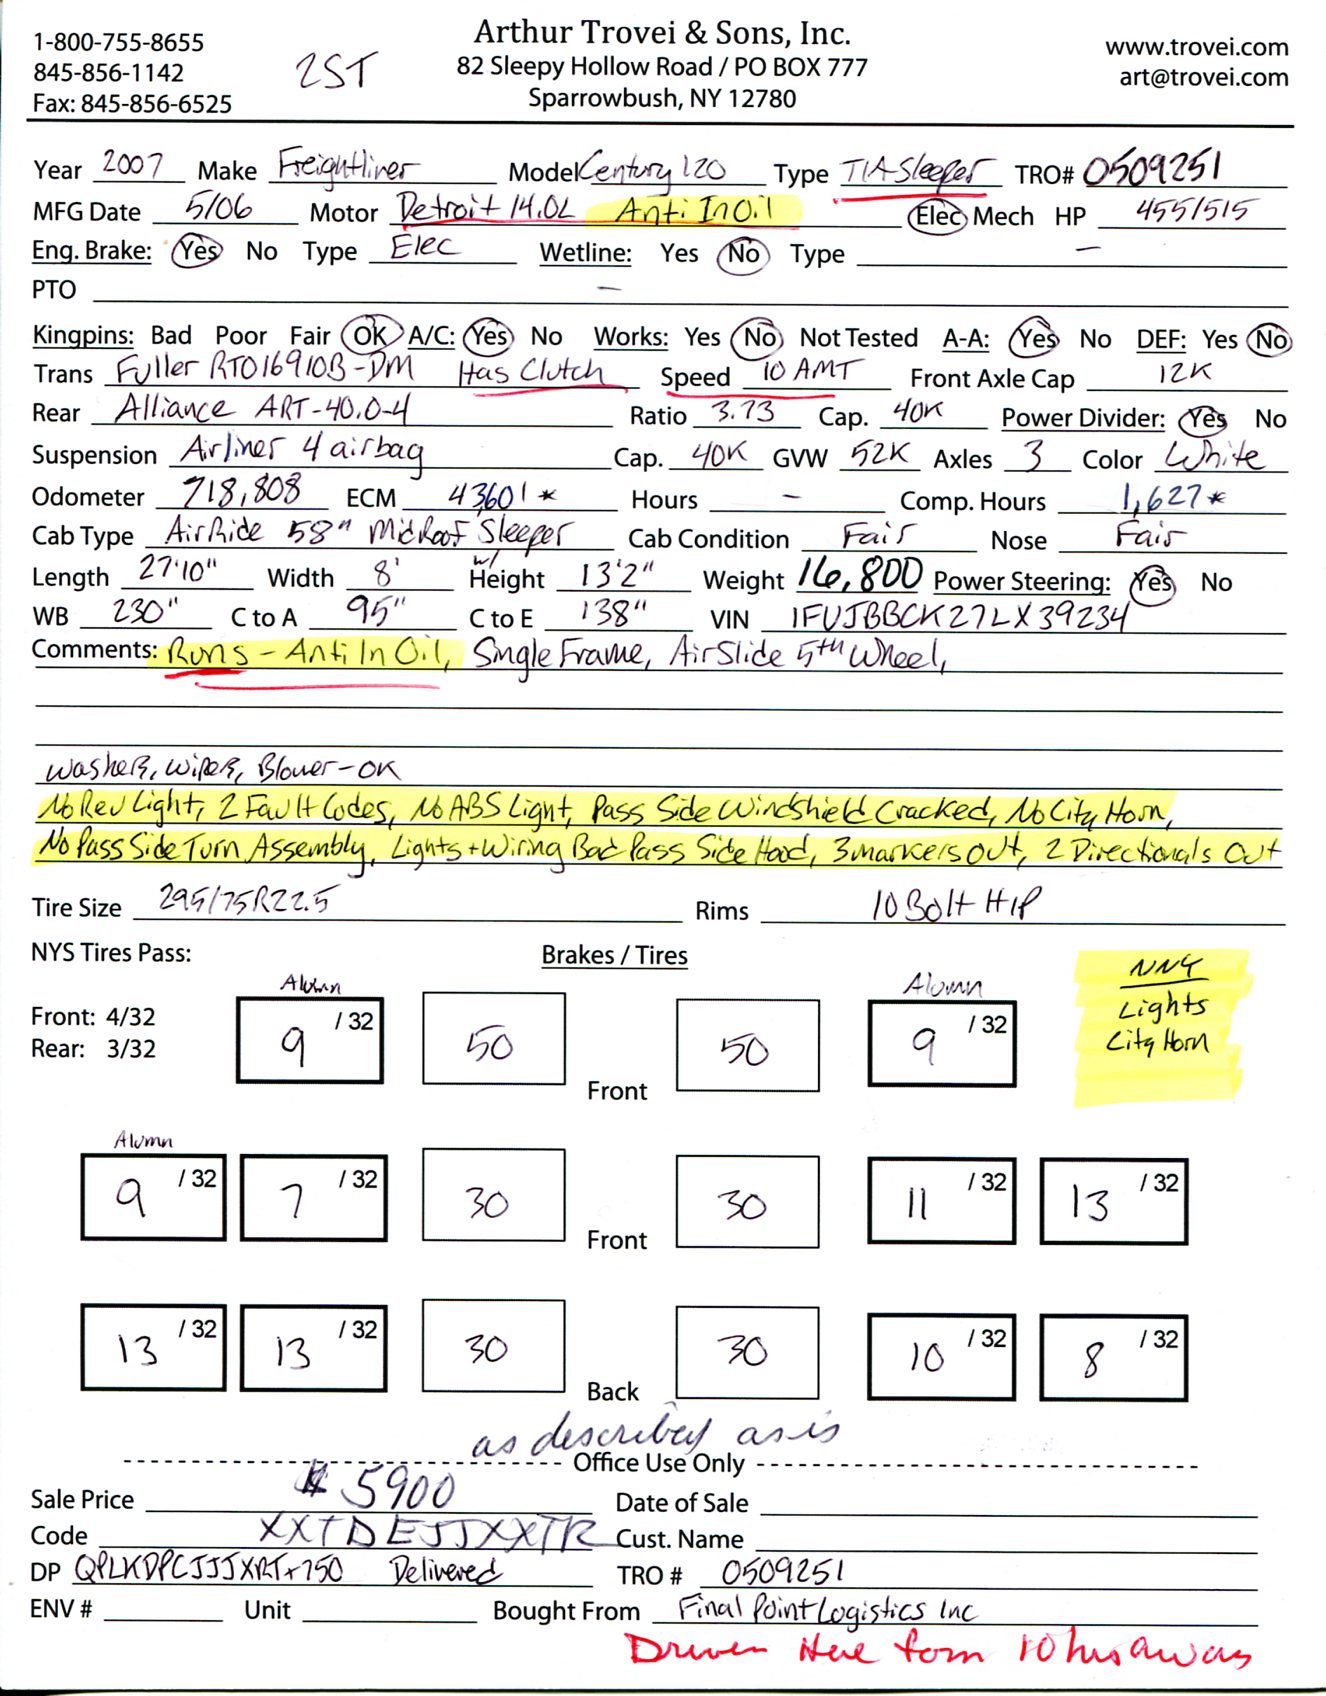 1-800-755-8655
845-856-1142
Fax: 845-856-6525
2ST
Arthur Trovei & Sons, Inc.
82 Sleepy Hollow Road / PO BOX 777
Sparrowbush, NY 12780
www.trovei.com
art@trovei.com
Year 2007 Make Freightliner Model Century 120 Type T/A Sleeper TRO# 0509251
MFG Date 5/06 Motor Detroit 14.0L Anti In Oil Elec Mech HP 455/515
Eng. Brake: Yes No Type Elec Wetline: Yes No Type —
PTO —
Kingpins: Bad Poor Fair OK A/C: Yes No Works: Yes No Not Tested A-A: Yes No DEF: Yes No
Trans Fuller RTO16910B-DM Has Clutch Speed 10 AMT Front Axle Cap 12K
Rear Alliance ART-40.0-4 Ratio 3.73 Cap. 40K Power Divider: Yes No
Suspension Airliner 4 airbag Cap. 40K GVW 52K Axles 3 Color White
Odometer 718,808 ECM 43,601* Hours – Comp. Hours 1,627*
Cab Type AirRide 58" MidRoof Sleeper Cab Condition Fair Nose Fair
Length 27'10" Width 8' w/ Height 13'2" Weight 16,800 Power Steering: Yes No
WB 230" C to A 95" C to E 138" VIN 1FUJBBCK27LX39234
Comments: Runs - Anti In Oil, Single Frame, AirSlide 5th Wheel,
Washer, Wiper, Blower - OK
No Rev Light, 2 Fault Codes, No ABS Light, Pass Side Windshield Cracked, No City Horn,
No Pass Side Turn Assembly, Lights + Wiring Bad Pass Side Hood, 3 markers out, 2 Directionals Out
Tire Size 295/75R22.5 Rims 10 Bolt H/P
NYS Tires Pass: Brakes / Tires
NNY
Lights
City Horn
Front: 4/32
Rear: 3/32
Alumn Alumn
9 /32 50 50 9 /32
Front
Alumn
9 /32 7 /32 30 30 11 /32 13 /32
Front
13 /32 13 /32 30 30 10 /32 8 /32
Back
as described as is
Office Use Only
Sale Price $5900 Date of Sale
Code XXTDEJJXXTR Cust. Name
DP QPLKDPCJJJXRT+750 Delivered TRO # 0509251
ENV # Unit Bought From Final Point Logistics Inc
Driven Here from 10 hrs away